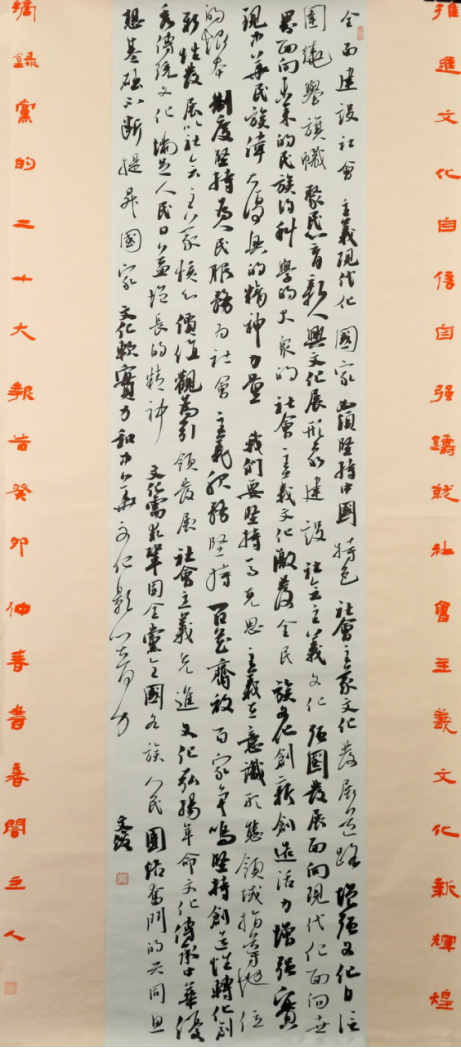 推進文化自信自强鑄就社會主義文化新輝煌
全面建設社會主義現代化國家必須堅持中國特色社會主義文化發展道路增强文化自信
圍繞舉旗幟聚民心育新人興文化展形象建設社會主義文化强國發展面向現代化面向世
界面向未來的民族的科學的大衆的社會主義文化激發全民族文化創新創造活力增强實
現中華民族偉大復興的精神力量我們要堅持馬克思主義在意識形態領域指導地位
的根本制度堅持為人民服務為社會主義服務堅持百花齊放百家爭鳴堅持創造性轉化創
新性發展以社會主義核心價值觀為引領發展社會主義先進文化弘揚革命文化傳承中華優
秀傳統文化滿足人民日益增長的精神文化需求鞏固全黨全國各族人民團結奮鬥的共同思
想基礎不斷提昇國家文化軟實力和中華文化影響力
摘錄黨的二十大報告癸卯仲春書春閣主人